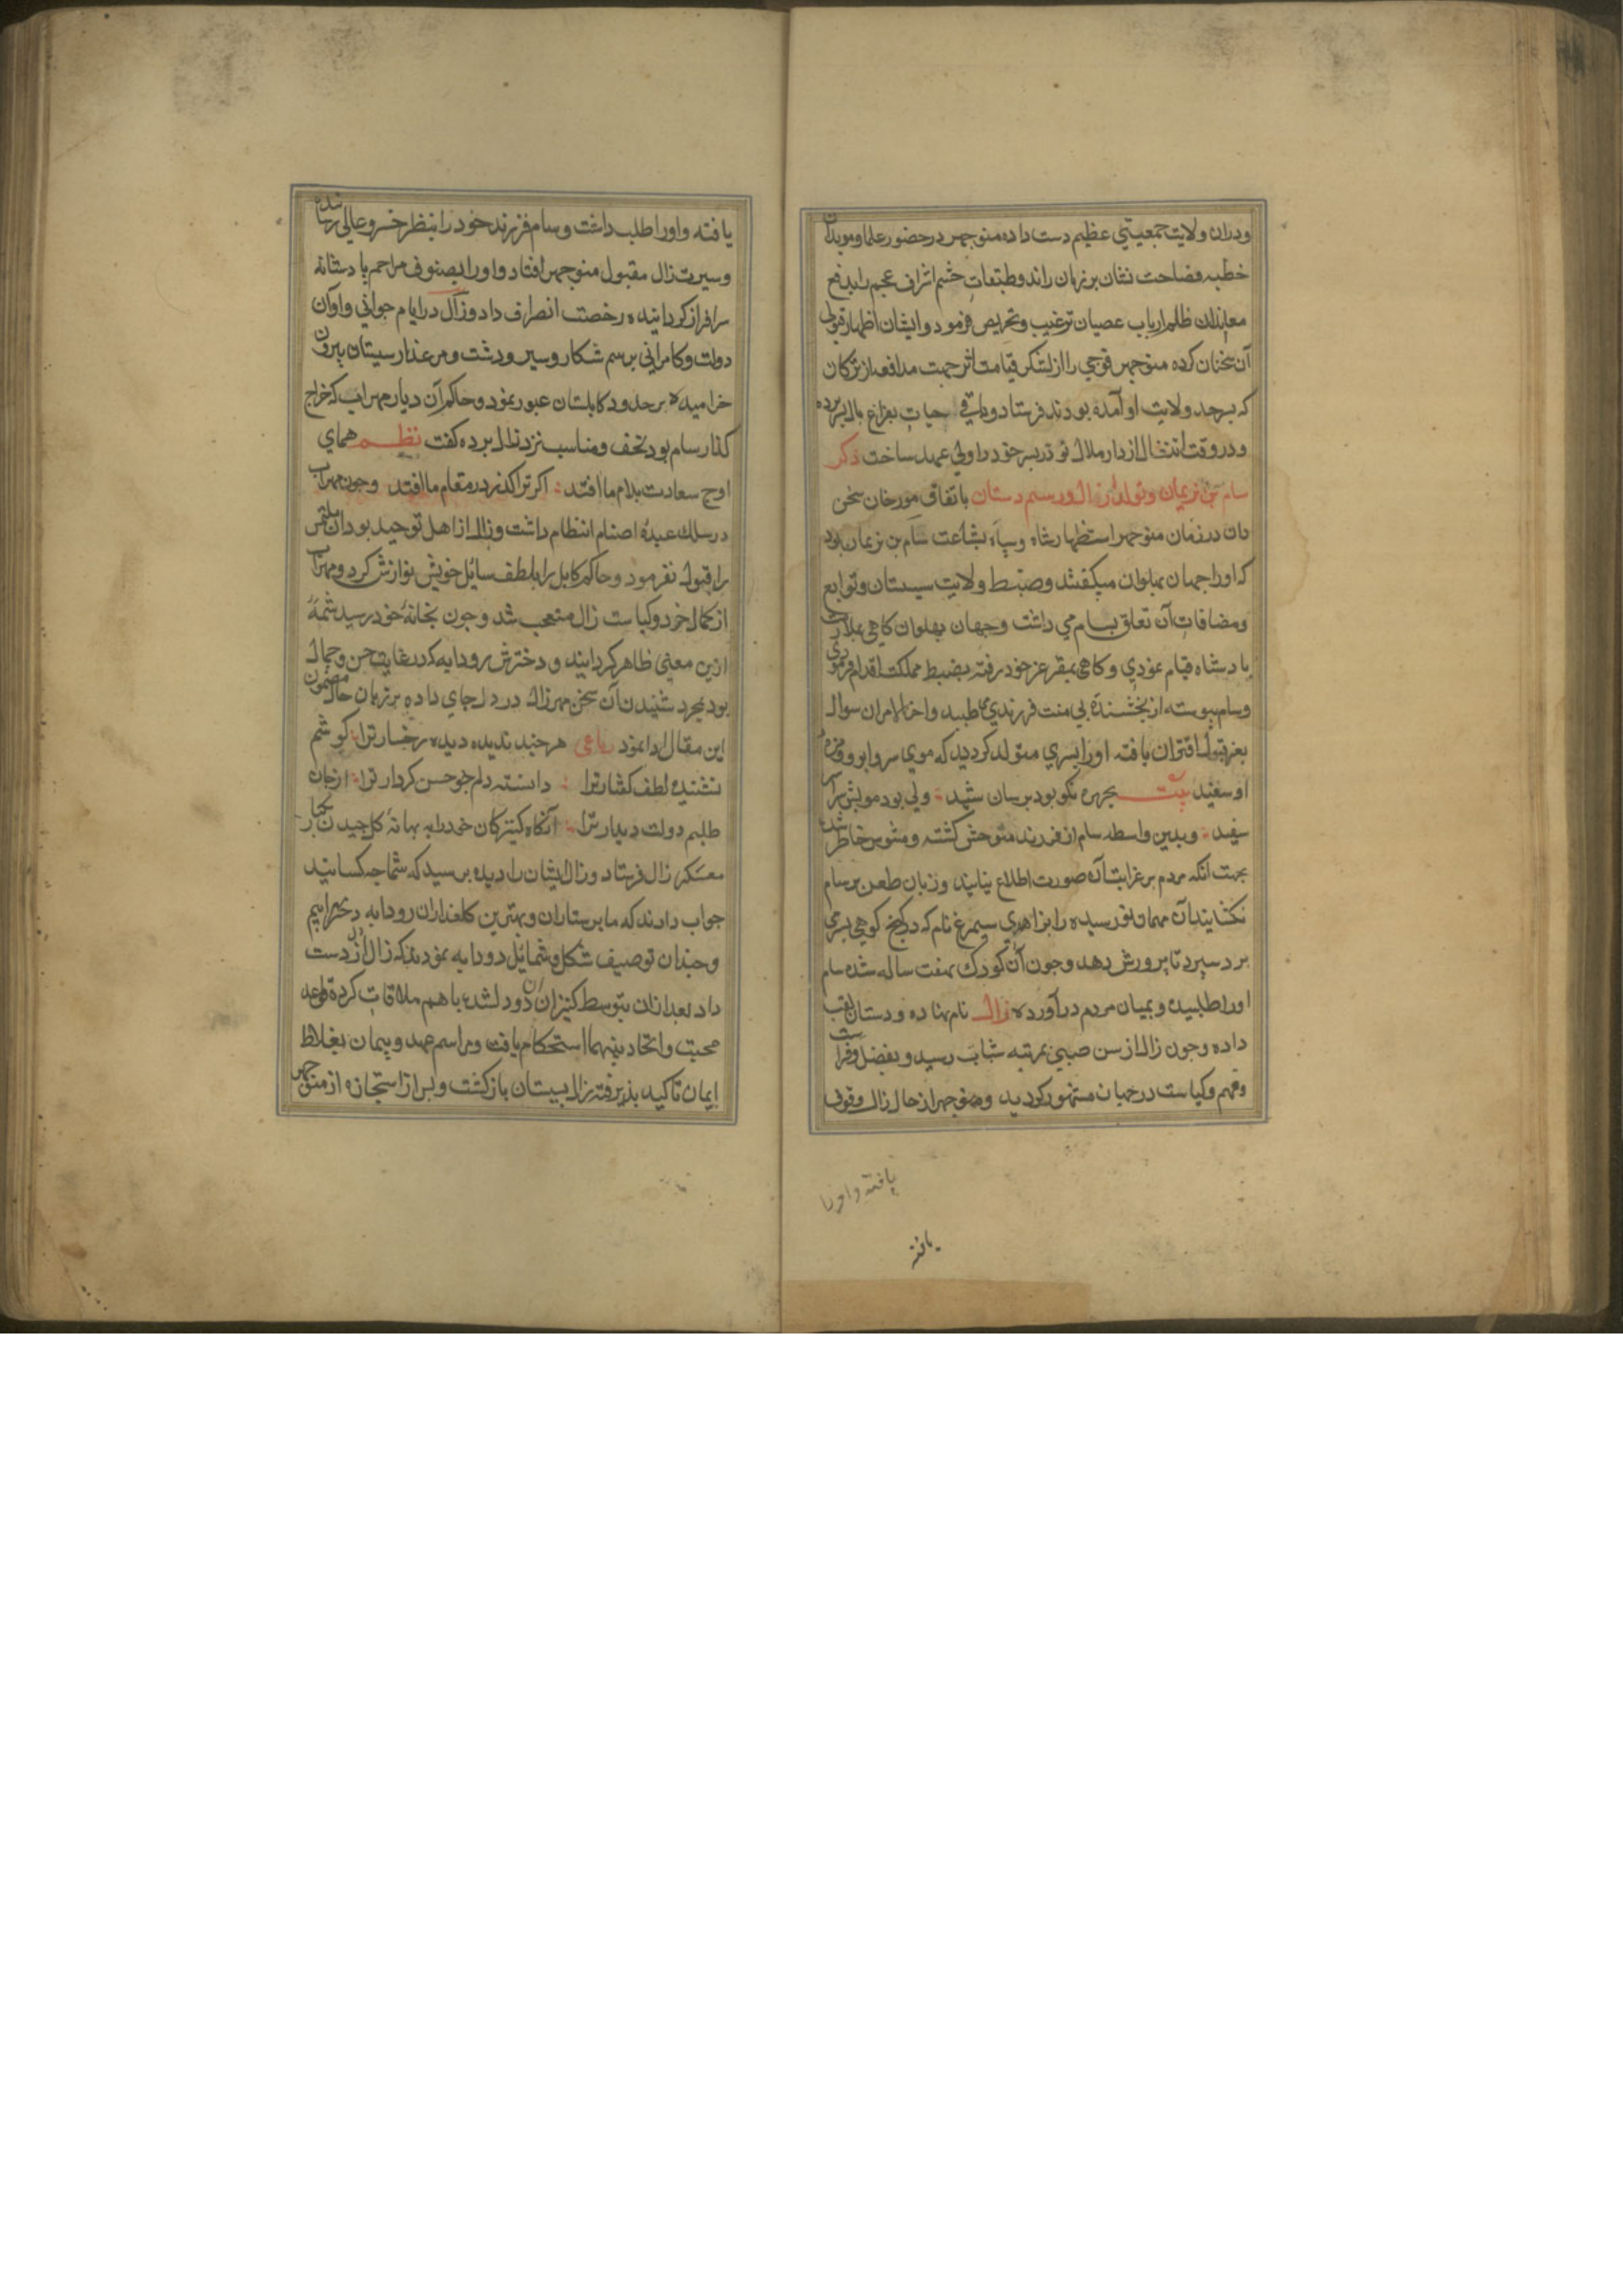 ودران ولایت جمعیتی عظیم دست داده منوجهر در حضور علما و موبدان
خطبه فصاحت نشان بر زبان راند و طبقات حشم اشراف عجم را بدفع
معاندان ظلم ارباب عصیان ترغیب و تحریص فرمود و ایشان اظهار قبولی
آن سخنان کرده منوجهر فوجی را از لشکر قیامت اثر جهت مدافعه ترکان
که بسرحد ولایت او آمده بودند فرستاد و باقی حیات بفراغ بال بسر برده
و در وقت انتقال از دار ملال نوذر پسر خود را ولی عهد ساخت ذکر
سام بن نریمان و تولد زال و رستم دستان باتفاق مورخان سخن
دان در زمان منوجهر استظهار شاه و سپاه بشجاعت سام بن نریمان بود
که او را جهان پهلوان میکفتند و ضبط ولایت سیستان و توابع
و مضافات آن تعلق بسام می داشت و جهان پهلوان کاهی بملازمت
پادشاه قیام نمودی و کاهی بمقر عز خود رفته بضبط مملکت اقدام فرمودی
و سام پیوسته از بخشنده بی منت فرزندی می طلبید و اخر الامر ان سوال
بعز قبول اقتران یافته او را پسری متولد کردید که موی سر و ابرو و مژه
او سفید بیت بجهره نکو بود برسان شید ولی بود مویش سراسر
سفید و بدین واسطه سام از فرزند متوحش کشته و مشوش خاطر شد
بجهت انکه مردم بر غرابت آن صورت اطلاع نیابند و زبان طعن بر سام
نکشایند آن مهمان نو رسیده را بزاهدی سیمرغ نام که در کنج کوهی بسر می
برد سپرد تا پرورش دهد و جون آن کودک هفت ساله شد سام
او را طلبید و بمیان مردم در آورده زال نام نهاده و دستان لقب
داده و جون زال از سن صبی بمرتبه شباب رسید و بفضل و فراست
و فهم و کیاست در جهان مشهور کردید و منوجهر از حال زال وقوف
یافته و اورا
یافته
یافته و او را طلب داشت و سام فرزند خود را بنظر خسرو عالی رسانیده
و سیرت زال مقبول منوجهر افتاد و او را بصنوف مراحم پادشاهانه
سرافراز کردانیده رخصت انصراف داد و زال در ایام جوانی و اوان
دولت و کامرانی برسم شکار و سیر و دشت و مرغذار سیستان بیرون
خرامیده بر حدود کابلستان عبور نمود و حاکم آن دیار مهراب که خراج
کذار سام بود تحف و مناسب نزد زال برده کفت نظم همای
اوج سعادت بدام ما افتد اکر ترا کذر در مقام ما افتد و جون مهراب
در سلک عبده اصنام انتظام داشت و زال از اهل توحید بود ان ملتمس
را قبول نفرمود و حاکم کابل را بلطف سائل خویش نوازش کرد و مهراب
از کمال خرد و کیاست زال متعجب شد و جون بخانه خود رسید شمه
ازین معنی ظاهر کردانید و دخترش رودابه که در غایت حسن و جمال
بود بمجرد شنیدن آن سخن مهر زال در دل جای داده بر زبان حال مضمون
این مقال ادا نمود رباعی هر جند ندیده دیده رخسار ترا کوشم
نشنیده لطف کفتار ترا دانسته دلم جو حسن کردار ترا از جان
طلبم دولت دیدار ترا آنکاه کنیزکان خود را به بهانه کل جیدن بکنار
معسکر زال فرستاد و زال ایشان را دیده پرسید که شما جه کسانید
جواب دادند که ما پرستاران و بهترین کلعذاران رودابه دختر مهرابیم
و جندان توصیف شکل و شمائل رودابه نمودند که زال دل از دست
داد بعد ازان بتوسط کنیزان آن دو دلشده باهم ملاقات کرده قواعد
محبت و اتحاد بینهما استحکام یافت و مراسم عهد و پیمان بغلاظ
ایمان تاکید پذیرفته زال بسیستان بازکشت و پس از استجازه از منوجهر